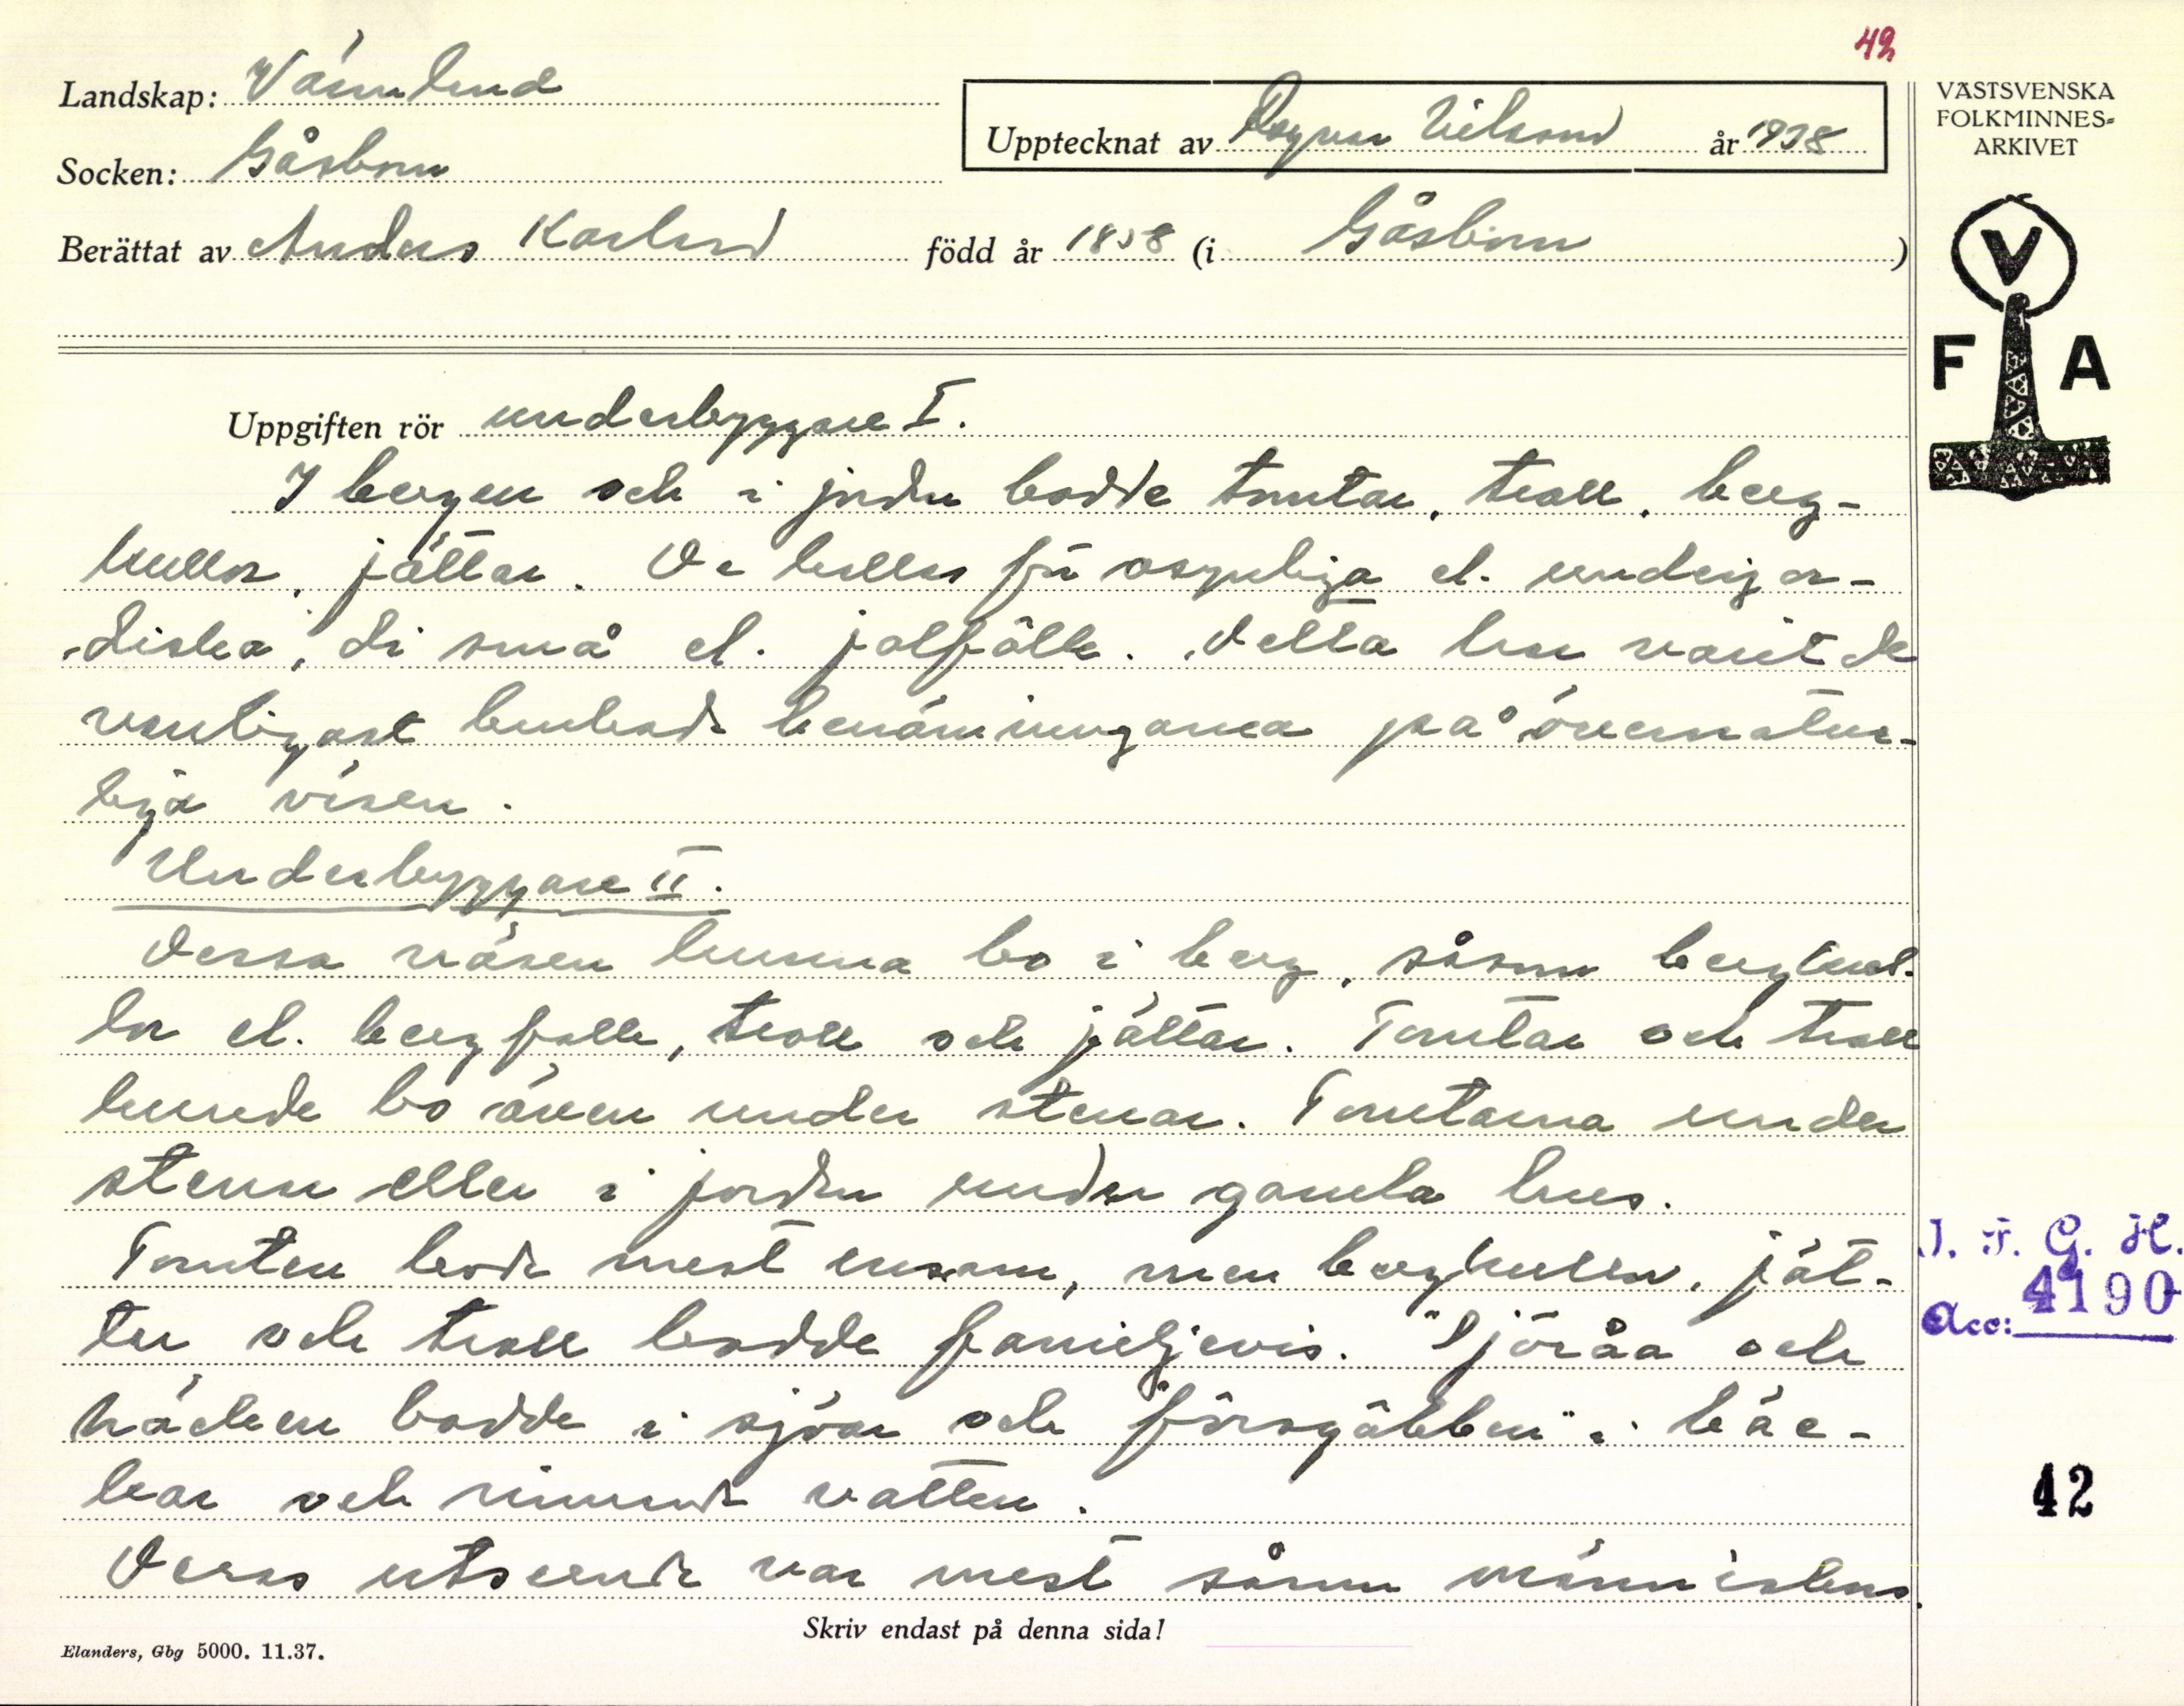 42
Landskap: Värmland
Upptecknat av Ragnar Nilsson år 1938
Socken: Gåsborn
Berättat av Anders Karlsson född år 1858 (i Gåsborn)
VÄSTSVENSKA
FOLKMINNES=
ARKIVET
V
F A
Uppgiften rör underbyggare I.
I bergen och i jorden bodde tomtar, troll, berg-
kullor, jättar. De kallas för osynliga el. underjor-
diska, di små el. jolfôlk. Detta har varit de
vanligast brukade benämningarna på övernatur-
liga väsen.
Underbyggare II.
Dessa väsen kunna bo i berg, såsom bergkul-
lor el. bergfolk, troll och jättar. Tomtar och troll
kunde bo även under stenar. Tomtarna under
stenar eller i jorden under gamla hus.
Tomten bodde mest ensam, men bergkullor, jät-
tar och troll bodde familjevis. "Sjöråa och
näcken bodde i sjöar och "forsgubben" i bäc-
kar och rinnande vatten.
Deras utseende var mest såsom människans.
J. F. G. H.
Acc: 4190
42
Skriv endast på denna sida!
Elanders, Gbg 5000. 11.37.